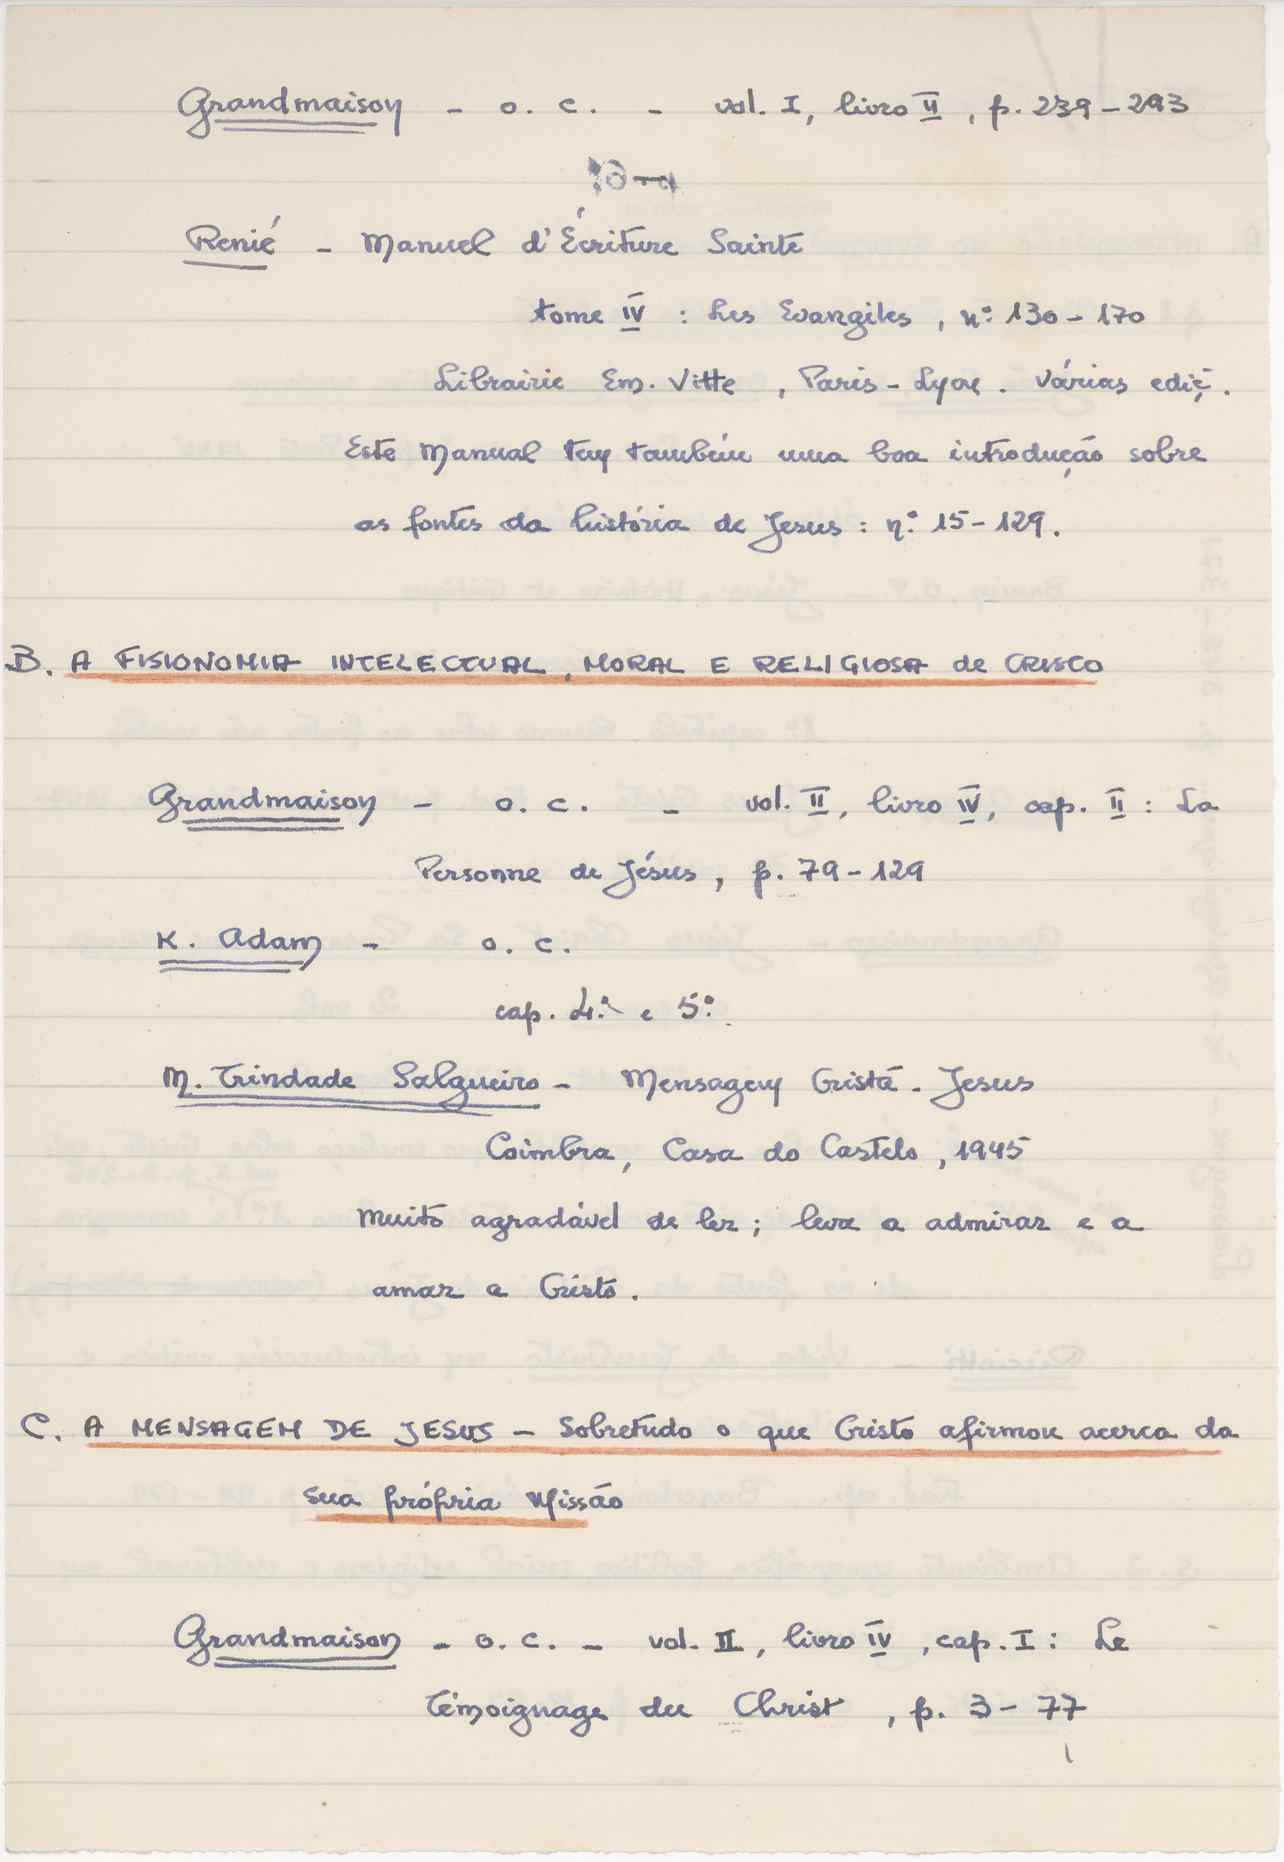 Grandmaison - o. c. - vol. I, livro II, p. 239-293
Renié - Manuel d'Écriture Sainte
tome IV : Les Evangiles, nº 130-170
Librairie Em. Vitte, Paris-Lyon. Várias ediç.
Este Manual tem também uma boa introdução sobre
as fontes da história de Jesus: nº 15-129.
B. A FISIONOMIA INTELECTUAL, MORAL E RELIGIOSA de CRISTO
Grandmaison - o. c. - vol. II, livro IV, cap. II: La
Personne de Jésus, p. 79-129
K. Adam - o. c.
cap. 4º e 5º.
M. Trindade Salgueiro - Mensagem Cristã - Jesus
Coimbra, Casa do Castelo, 1945
Muito agradável de ler; leva a admirar e a
amar a Cristo.
C. A MENSAGEM DE JESUS - Sobretudo o que Cristo afirmou acerca da
sua própria Missão
Grandmaison - o. c. - vol. II, livro IV, cap. I: Le
Témoignage du Christ, p. 3-77